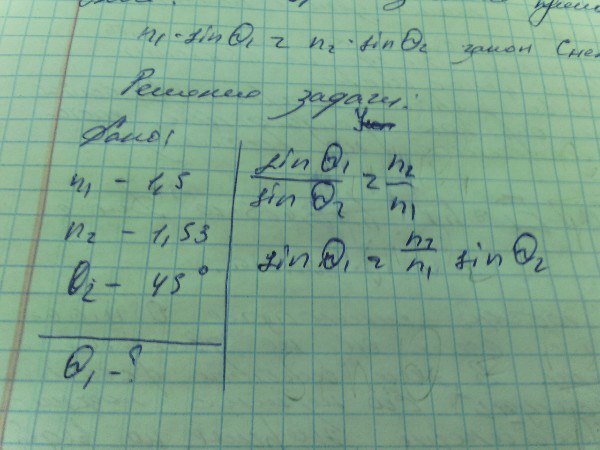 n₁ · sin θ₁ = n₂ · sin θ₂ закон
Решение задачи:
Дано:
n₁ - 1,5
n₂ - 1,53
θ₂ - 45°
θ₁ - ?
sin θ₁ / sin θ₂ = n₂ / n₁
sin θ₁ = n₂ / n₁ sin θ₂